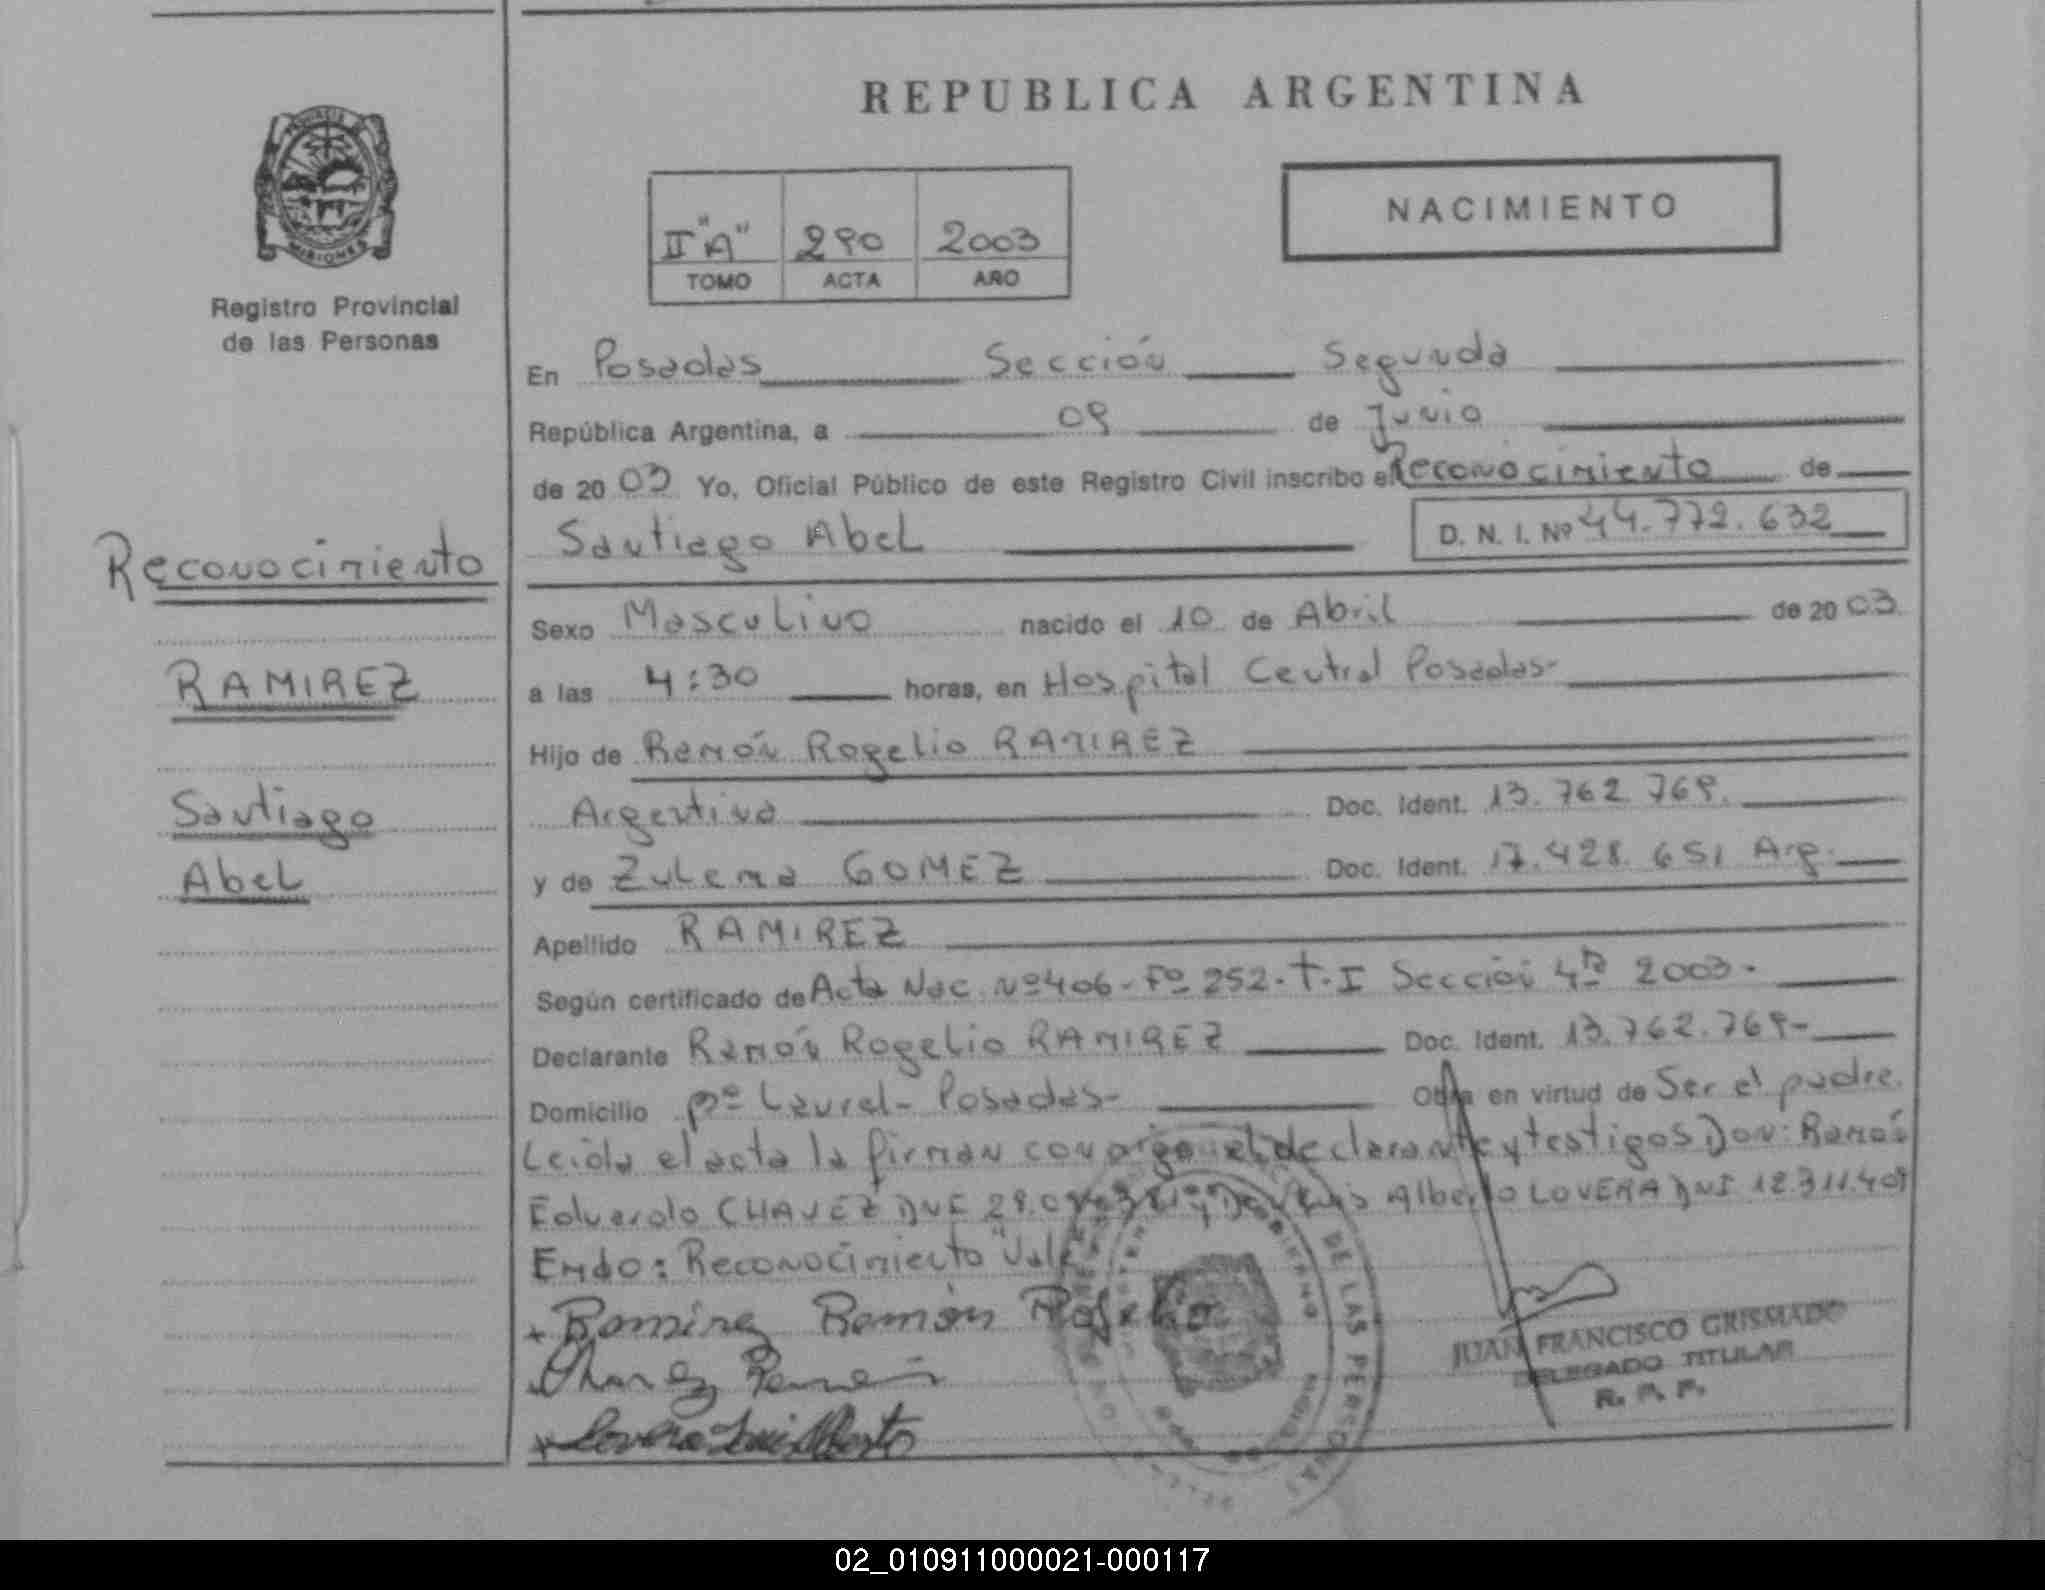 REPUBLICA ARGENTINA
NACIMIENTO
II "A" 290 2003
TOMO ACTA AÑO
PROVINCIA DE
MISIONES
Registro Provincial
de las Personas
En Posadas Sección Segunda
República Argentina, a 09 de Junio
de 2003 Yo, Oficial Público de este Registro Civil inscribo el Reconocimiento de
Santiago Abel D. N. I. Nº 44.772.632
Reconocimiento
Sexo Masculino nacido el 10 de Abril de 2003
RAMIREZ
a las 4:30 horas, en Hospital Central Posadas-
Hijo de Ramón Rogelio RAMIREZ
Santiago
Argentino Doc. Ident. 13.762.769.
Abel
y de Zulema GOMEZ Doc. Ident. 17.428.651 Arg.
Apellido RAMIREZ
Según certificado de Acta Nac. Nº 406- Fº 252- T. I Sección 4ta 2003-
Declarante Ramón Rogelio RAMIREZ Doc. Ident. 13.762.769-
Domicilio Bº Laurel- Posadas- Obra en virtud de Ser el padre.
Leida el acta la firman conmigo el declarante y testigos Don: Ramón
Eduardo CHAVEZ DNI y Don Luis Alberto LOVERA DNI 12.311.409
Emdo: Reconocimiento "Vale
x Ramirez Ramón Rogelio
Chavez Ramón
x Lovera Luis Alberto
DE LAS PERSONAS
JUAN FRANCISCO GRISMADO
DELEGADO TITULAR
R. P. P.
02_010911000021-000117